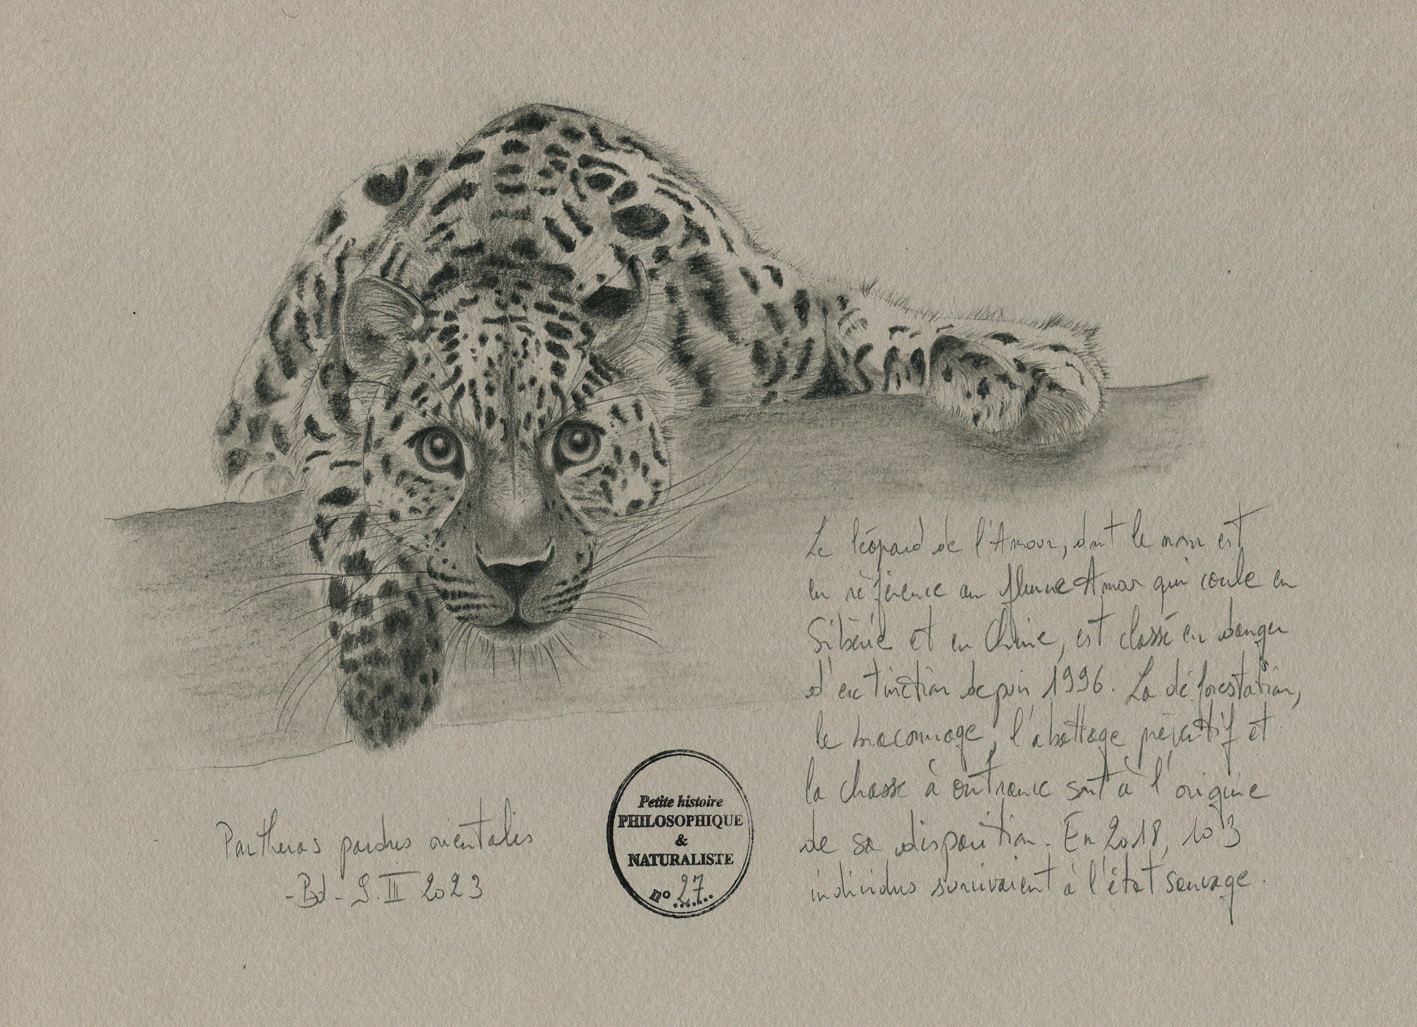 Le léopard de l'Amour, dont le nom est
en référence au fleuve Amour qui coule en
Sibérie et en Chine, est classé en danger
d'extinction depuis 1996. La déforestation,
le braconnage, l'abattage préventif et
la chasse à outrance sont à l'origine
de sa disparition. En 2018, 103
individus survivaient à l'état sauvage.
Pantheras pardus orientalis
-Bd- 9.II 2023
Petite histoire
PHILOSOPHIQUE
&
NATURALISTE
n° 27